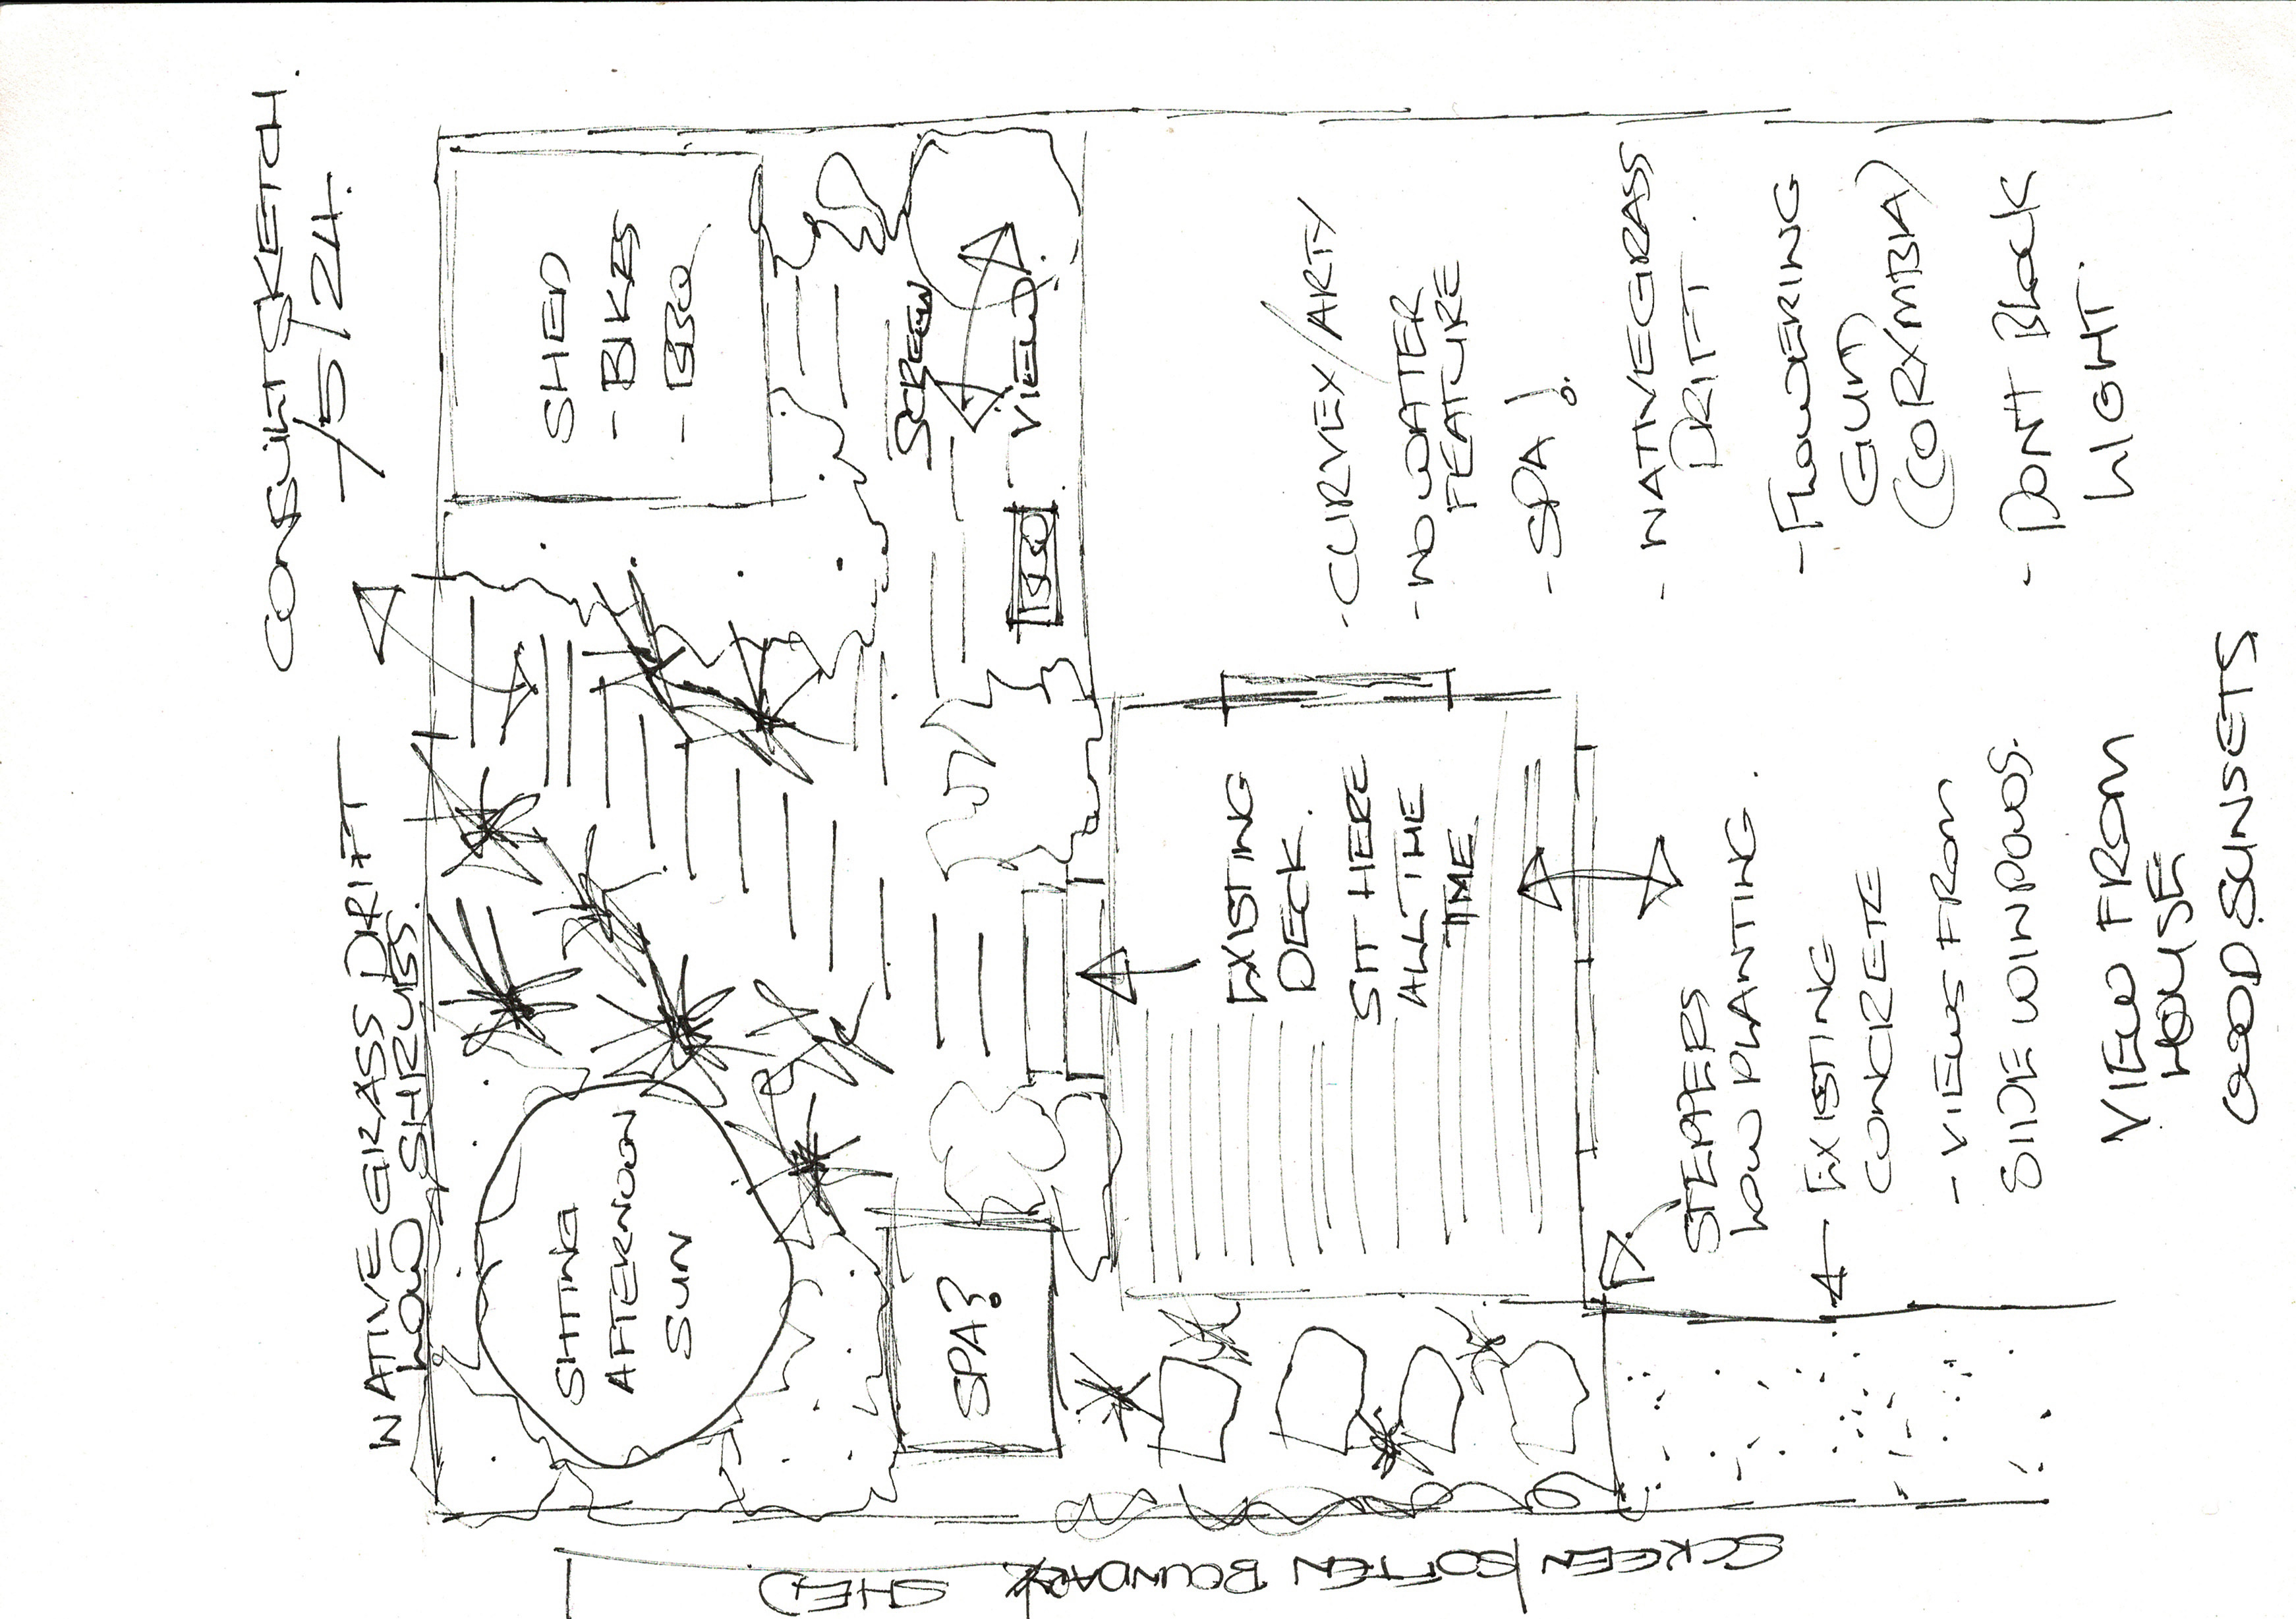 CONSULT SKETCH.
7/5/24.
NATIVE GRASS DRIFT
LOW SHRUBS.
SHED
- BIKES
- BBQ
SITTING
AFTERNOON
SUN
SCREEN
VIEW
BBQ
SPA?
EXISTING
DECK.
SIT HERE
ALL THE
TIME
- CURVEX/ARTY
- NO WATER
FEATURE
- SPA!
- NATIVE GRASS
DRIFT.
- FLOWERING
GUM
(CORXMBIA)
- DONT BLOCK
LIGHT.
STEPPERS
LOW PLANTING.
EXISTING
CONCRETE
- VIEWS FROM
SIDE WINDOWS.
VIEW FROM
HOUSE
GOOD SUNSETS
SCREEN/SOFTEN BOUNDARY
SHED